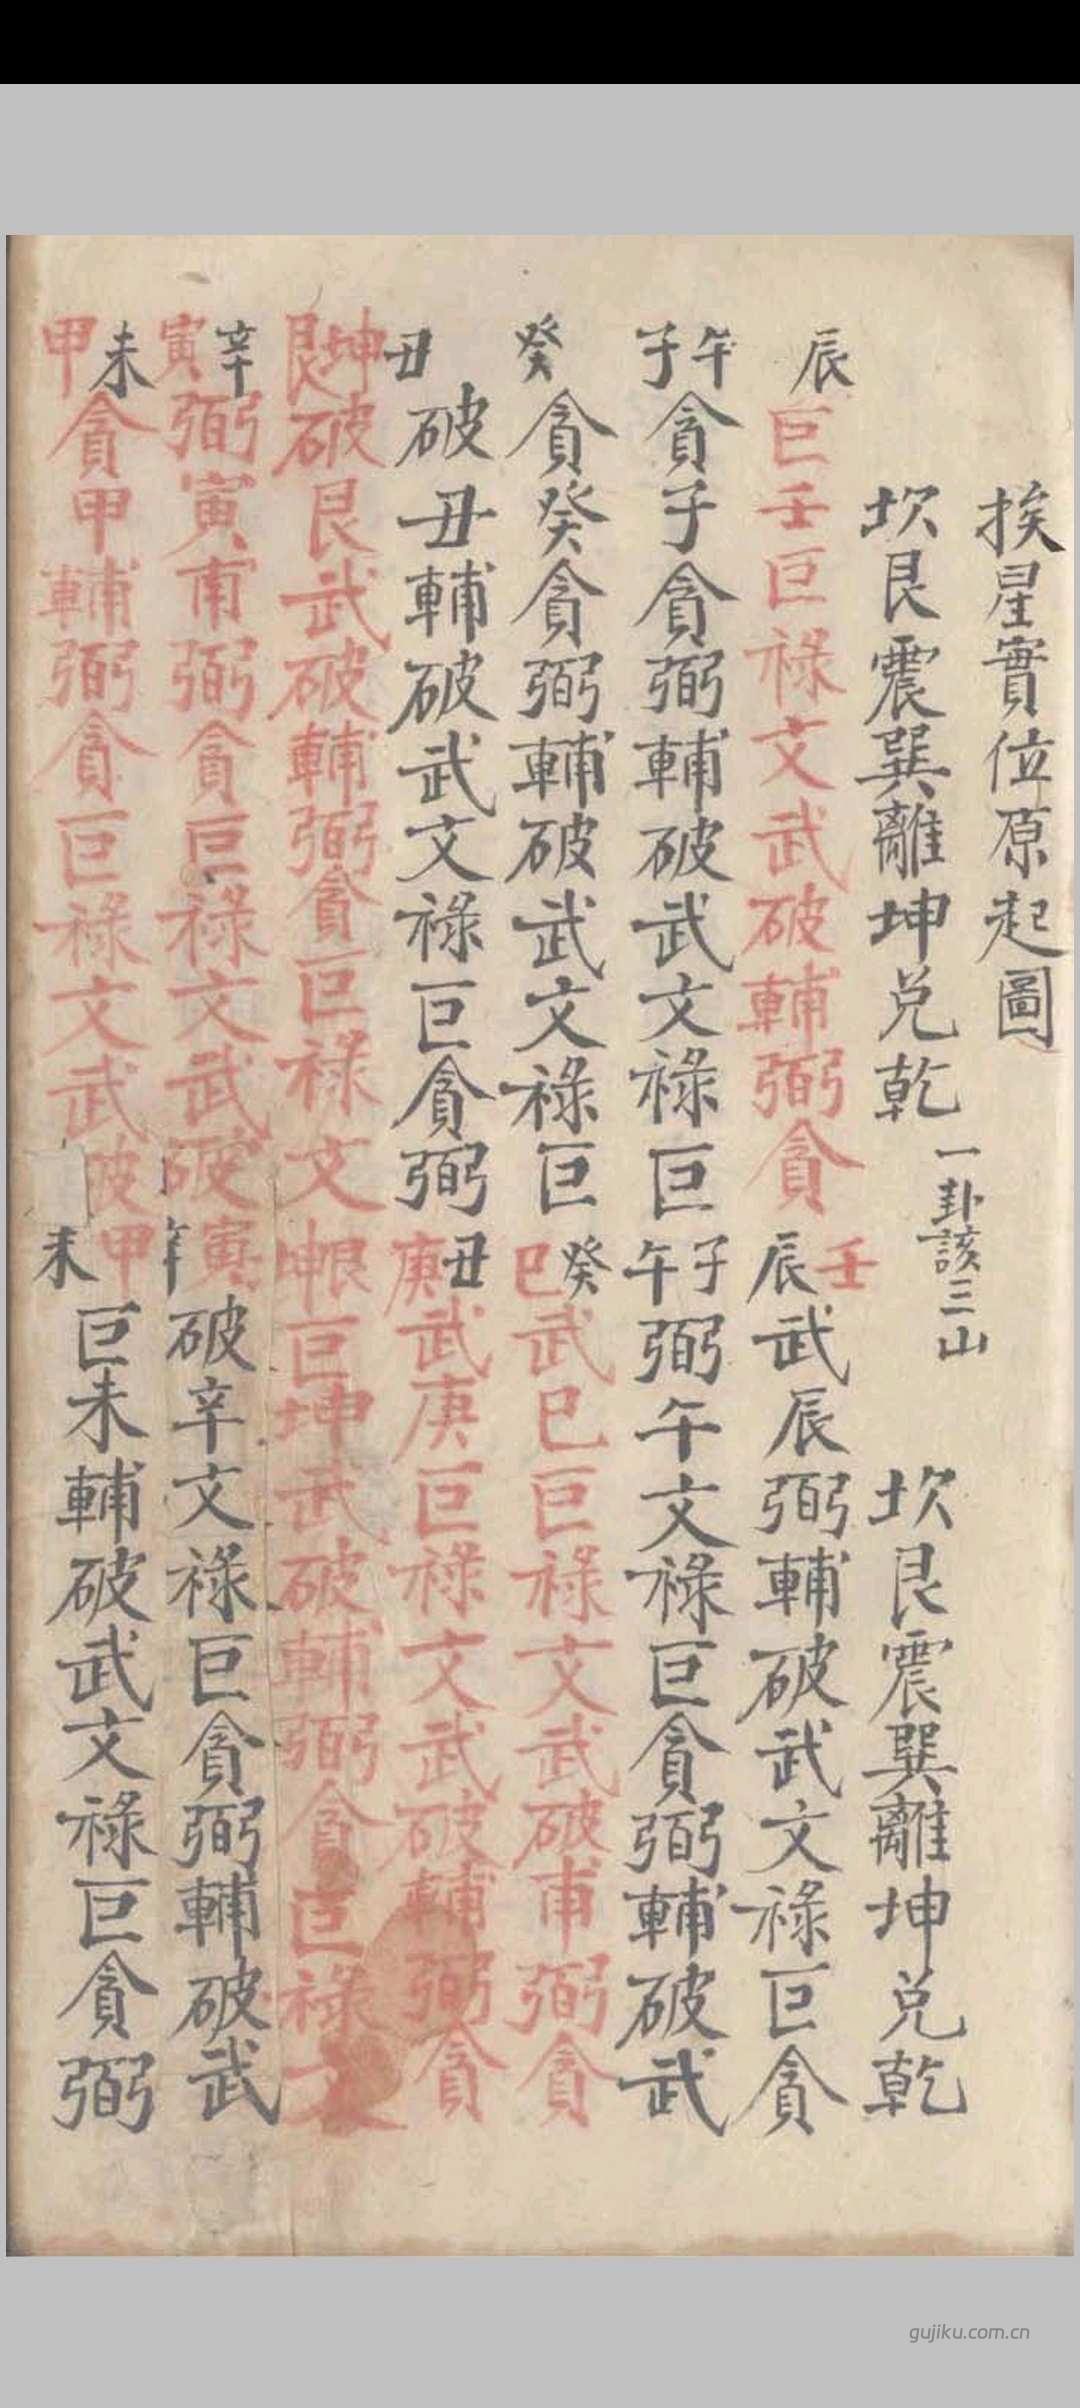 挨星實位原起圖
坎艮震巽離坤兑乾 一卦該三山 坎艮震巽離坤兑乾
辰 巨壬巨祿文武破輔弼貪 壬辰 武辰弼輔破武文祿巨貪
午子 貪子貪弼輔破武文祿巨 子午 弼午文祿巨貪弼輔破武
癸 貪癸貪弼輔破武文祿巨 癸巳 武巳巨祿文武破甫弼貪
丑 破丑輔破武文祿巨貪弼 丑庚 武庚巨祿文武破輔弼貪
坤艮 破艮武破輔弼貪巨祿文 艮坤 巨坤武破輔弼貪巨祿文
辛寅 弼寅甫弼貪巨祿文武破 寅辛 破辛文祿巨貪弼輔破武
未甲 貪甲輔弼貪巨祿文武破 甲未 巨未輔破武文祿巨貪弼
gujiku.com.cn